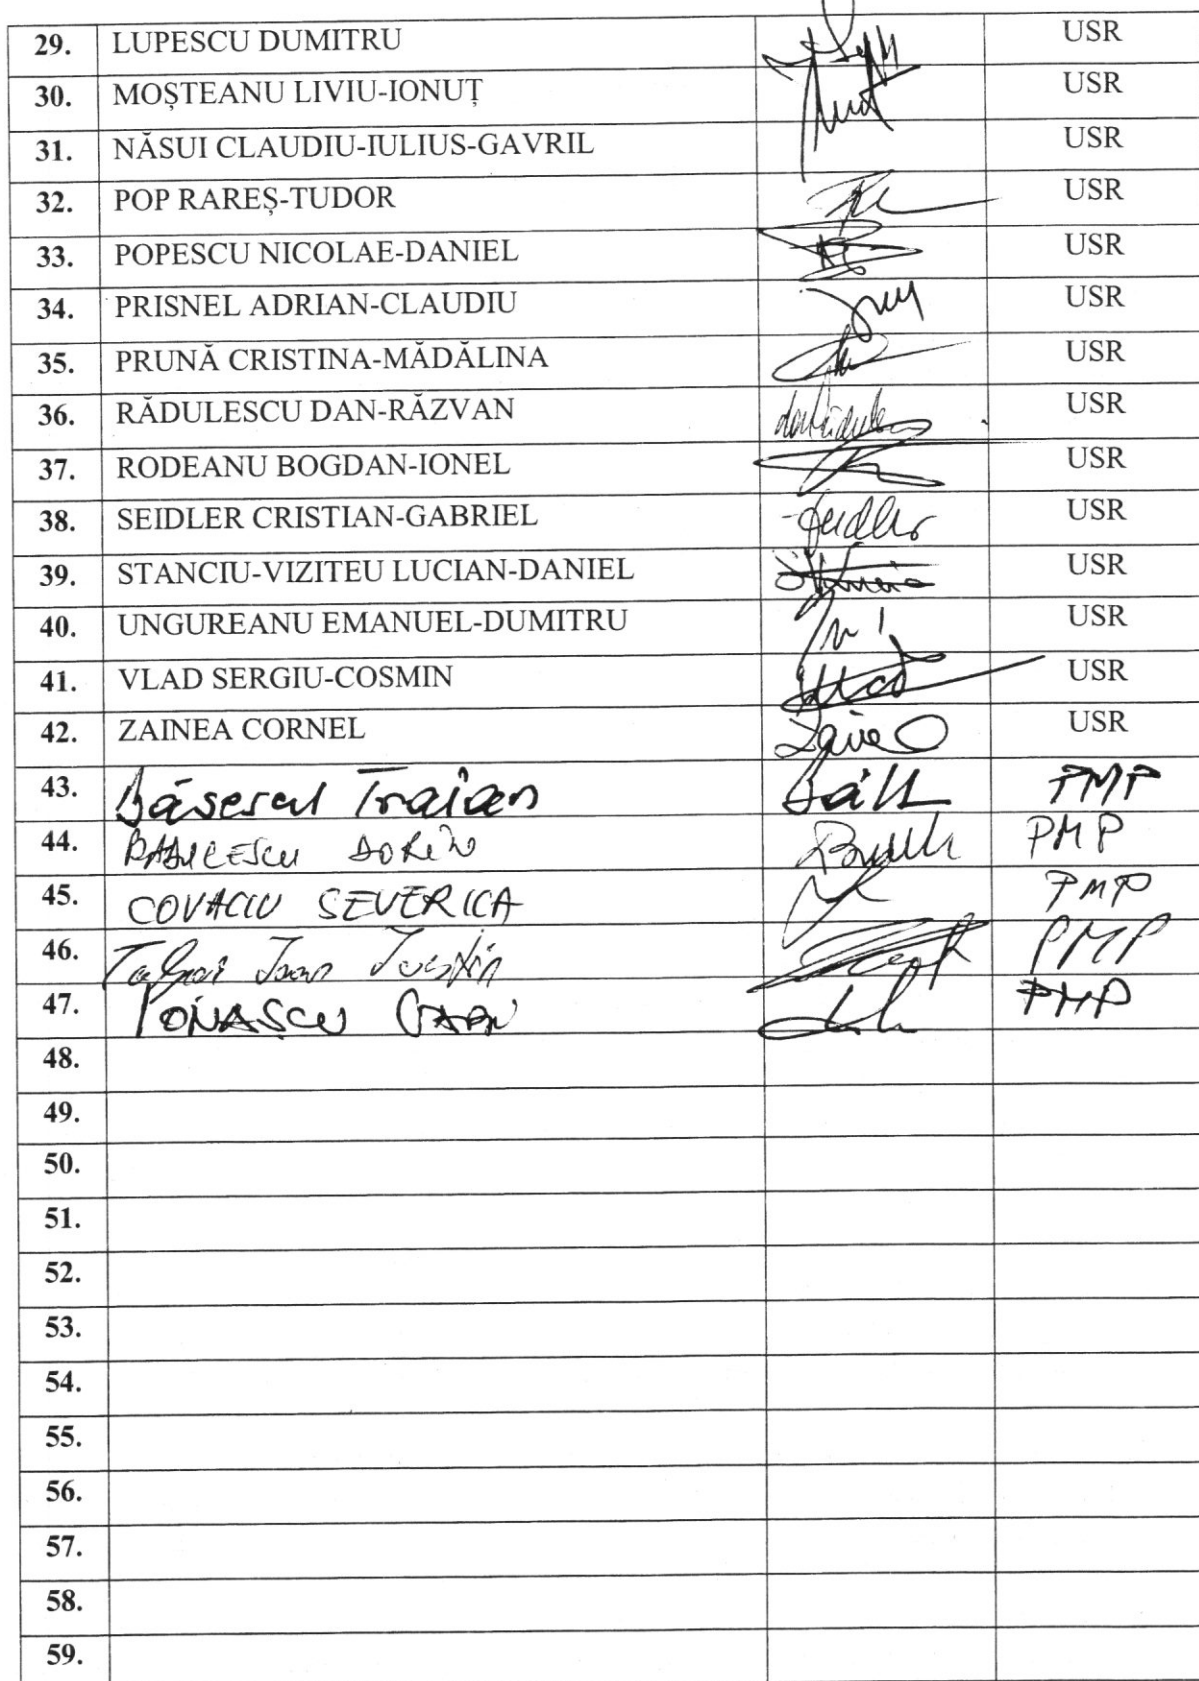 29. LUPESCU DUMITRU USR
30. MOȘTEANU LIVIU-IONUȚ USR
31. NĂSUI CLAUDIU-IULIUS-GAVRIL USR
32. POP RAREȘ-TUDOR USR
33. POPESCU NICOLAE-DANIEL USR
34. PRISNEL ADRIAN-CLAUDIU USR
35. PRUNĂ CRISTINA-MĂDĂLINA USR
36. RĂDULESCU DAN-RĂZVAN USR
37. RODEANU BOGDAN-IONEL USR
38. SEIDLER CRISTIAN-GABRIEL Seidler USR
39. STANCIU-VIZITEU LUCIAN-DANIEL USR
40. UNGUREANU EMANUEL-DUMITRU USR
41. VLAD SERGIU-COSMIN USR
42. ZAINEA CORNEL USR
43. Băsescu Traian PMP
44. BĂDULESCU DORIN PMP
45. COVACIU SEVERICA PMP
46. Ioan PMP
47. IONAȘCU PMP
48.
49.
50.
51.
52.
53.
54.
55.
56.
57.
58.
59.